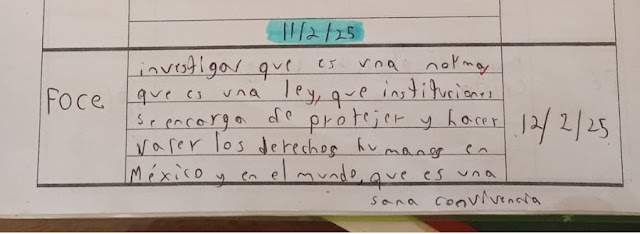 11/2/25
investigar que es una norma,
que es una ley, que instituciones
Foce
se encarga de protejer y hacer
12/2/25
valer los derechos humanos en
México y en el mundo, que es una
sana convivencia